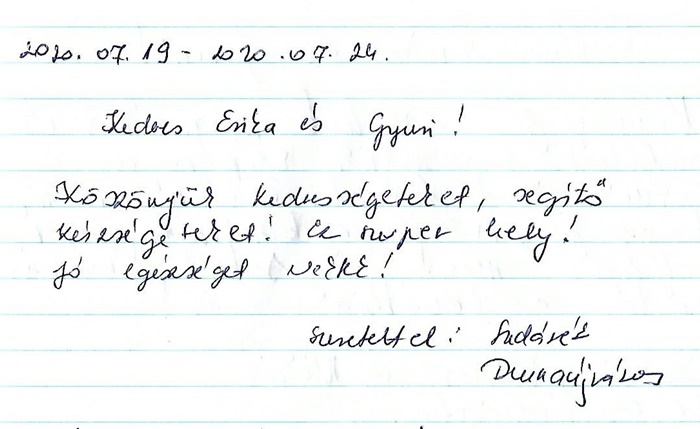 2020. 07. 19 - 2020. 07. 24.
Kedves Erika és Gyuri!
Köszönjük kedvességeteket, segítő
készségeteket! Ez szuper hely!
Jó egészséget Nektek!
Szeretettel:
Dunaújváros